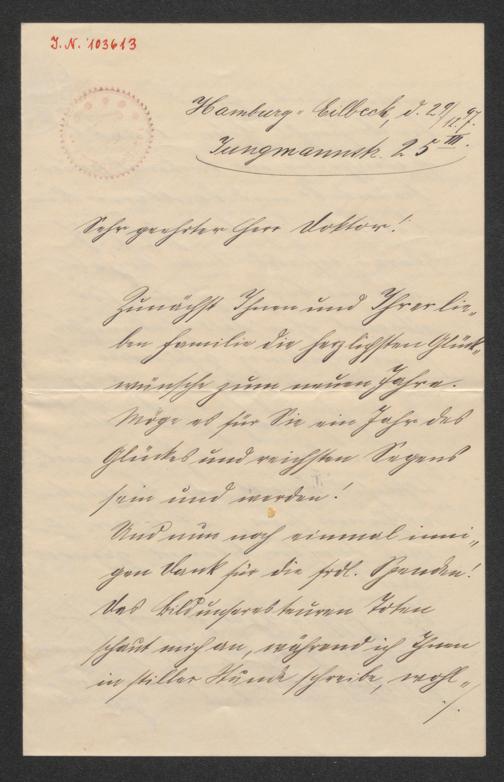 J. N. 103613
Hamburg-Eilbeck, d. 29/12. 97.
Jungmannstr. 25 III.
Sehr geehrter Herr Doktor!
Zunächst Ihnen und Ihrer lie-
ben Familie die herzlichsten Glück-
wünsche zum neuen Jahre.
Möge es für Sie ein Jahr des
Glückes und reichsten Segens
sein und werden!
Und nun noch einmal inni-
gen Dank für die frdl. Spenden!
Das Bild unseres teuren Toten
schaut mich an, während ich Ihnen
in stiller Stunde schreibe, wohl-
./.